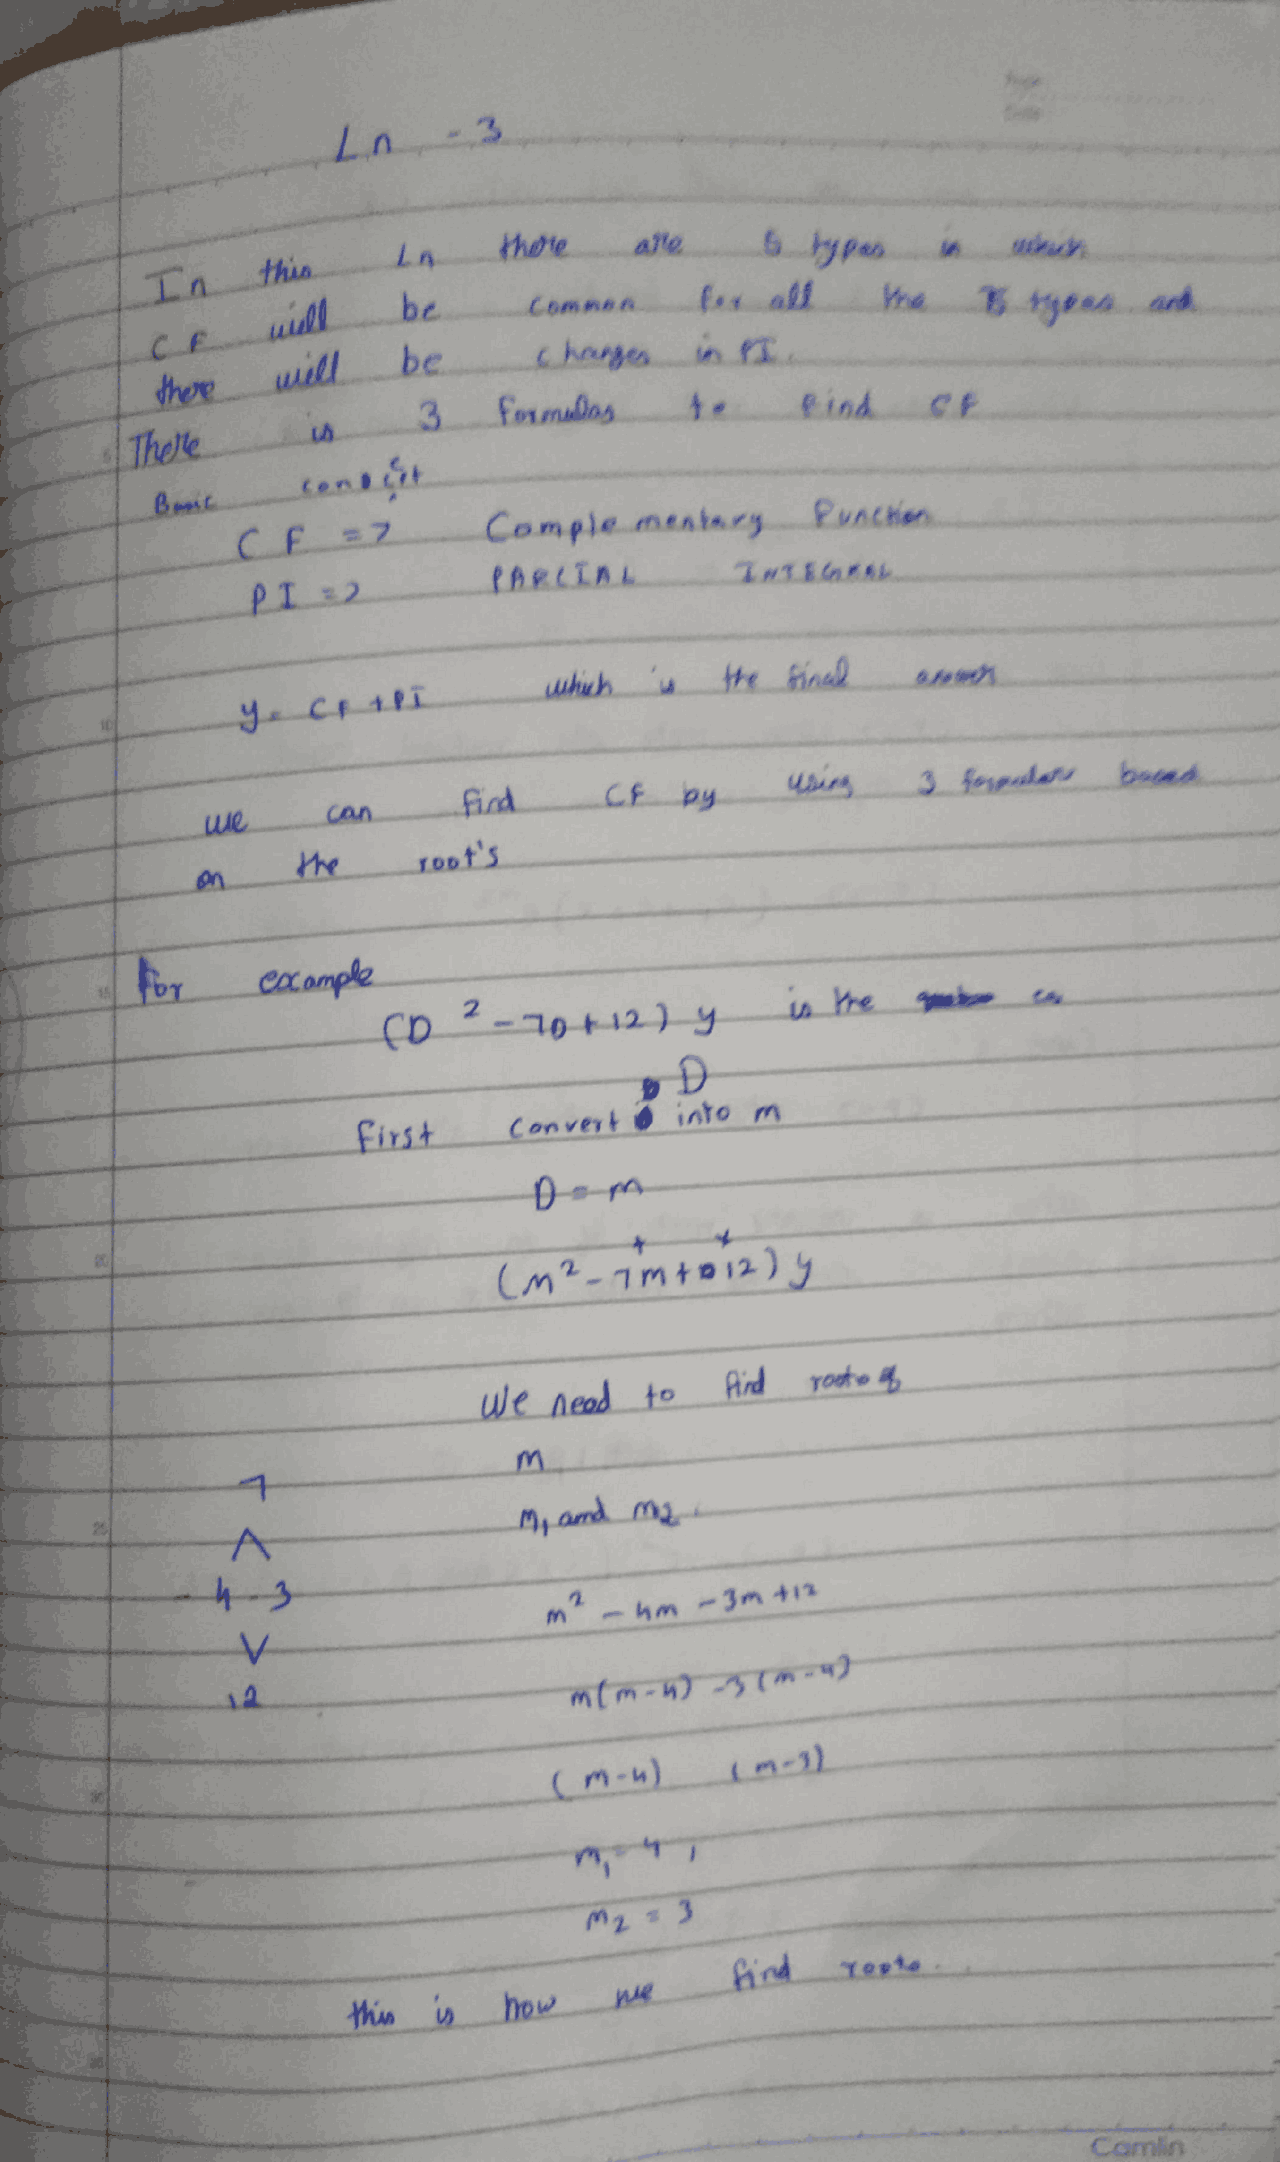 Ln - 3
In this Ln there are 5 types in which
CF will be common for all the 5 types and
there will be changes in PI.
There is 3 formulas to find CF
Basic
CF => Complementary Function
PI => PARCIAL INTEGRAL
y = CF + PI which is the final answer
we can find CF by using 3 formulars based
on the root's
For example
(D² - 7D + 12) y is the
D
First convert into m
D = m
+ x
(m² - 7m + 12) y
We need to find roots of
m
7
m₁ and m₂.
- 4 - 3
m² - 4m - 3m + 12
12
m(m-4) -3(m-4)
(m-4) (m-3)
m₁ = 4,
m₂ = 3
this is how we find roots.
Camlin